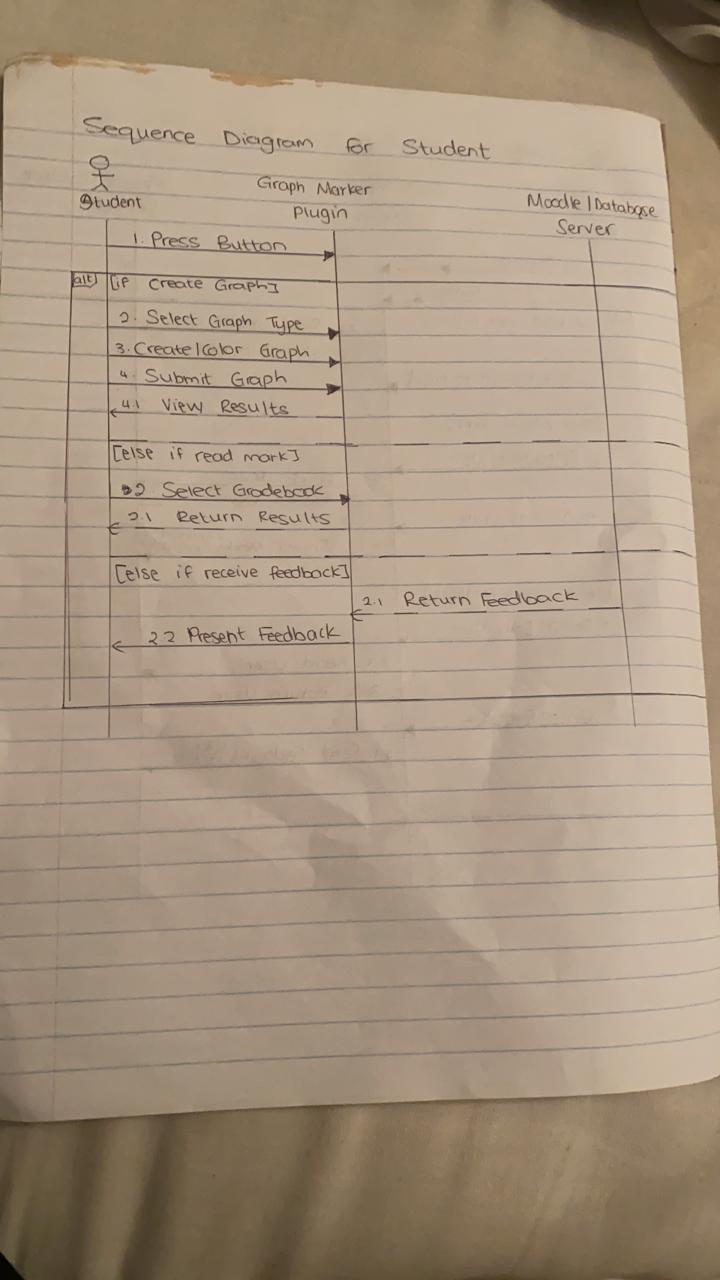 Sequence Diagram for Student
Student
Graph Marker
Plugin
Moodle/Database
Server
1. Press Button
alt
[if Create Graph]
2. Select Graph Type
3. Create/Color Graph
4. Submit Graph
4.1 View Results
[else if read mark]
2 Select Gradebook
2.1 Return Results
[else if receive feedback]
2.1 Return Feedback
2.2 Present Feedback